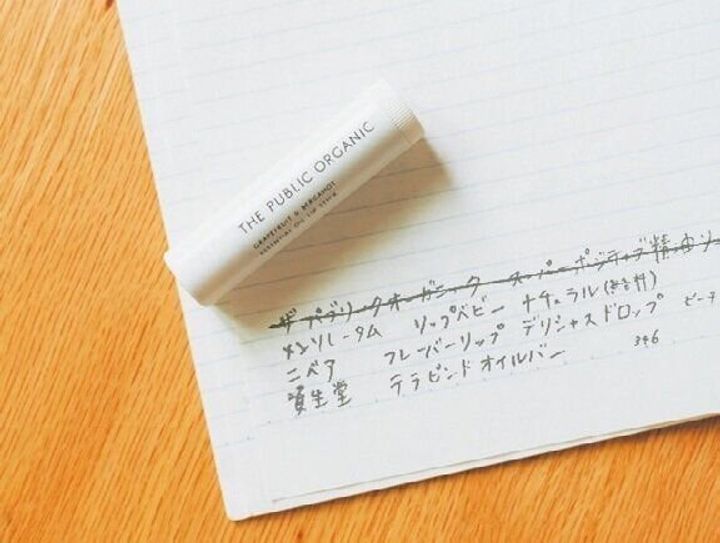 THE PUBLIC ORGANIC
GRAPEFRUIT & BERGAMOT
ESSENTIAL OIL LIP STICK
ザ パブリックオーガニック スーパーポジティブ精油リ
メンソレータム リップベビー ナチュラル(無香料)
ニベア フレーバーリップ デリシャスドロップ ピーチ
346
資生堂 テラビンド オイルバー